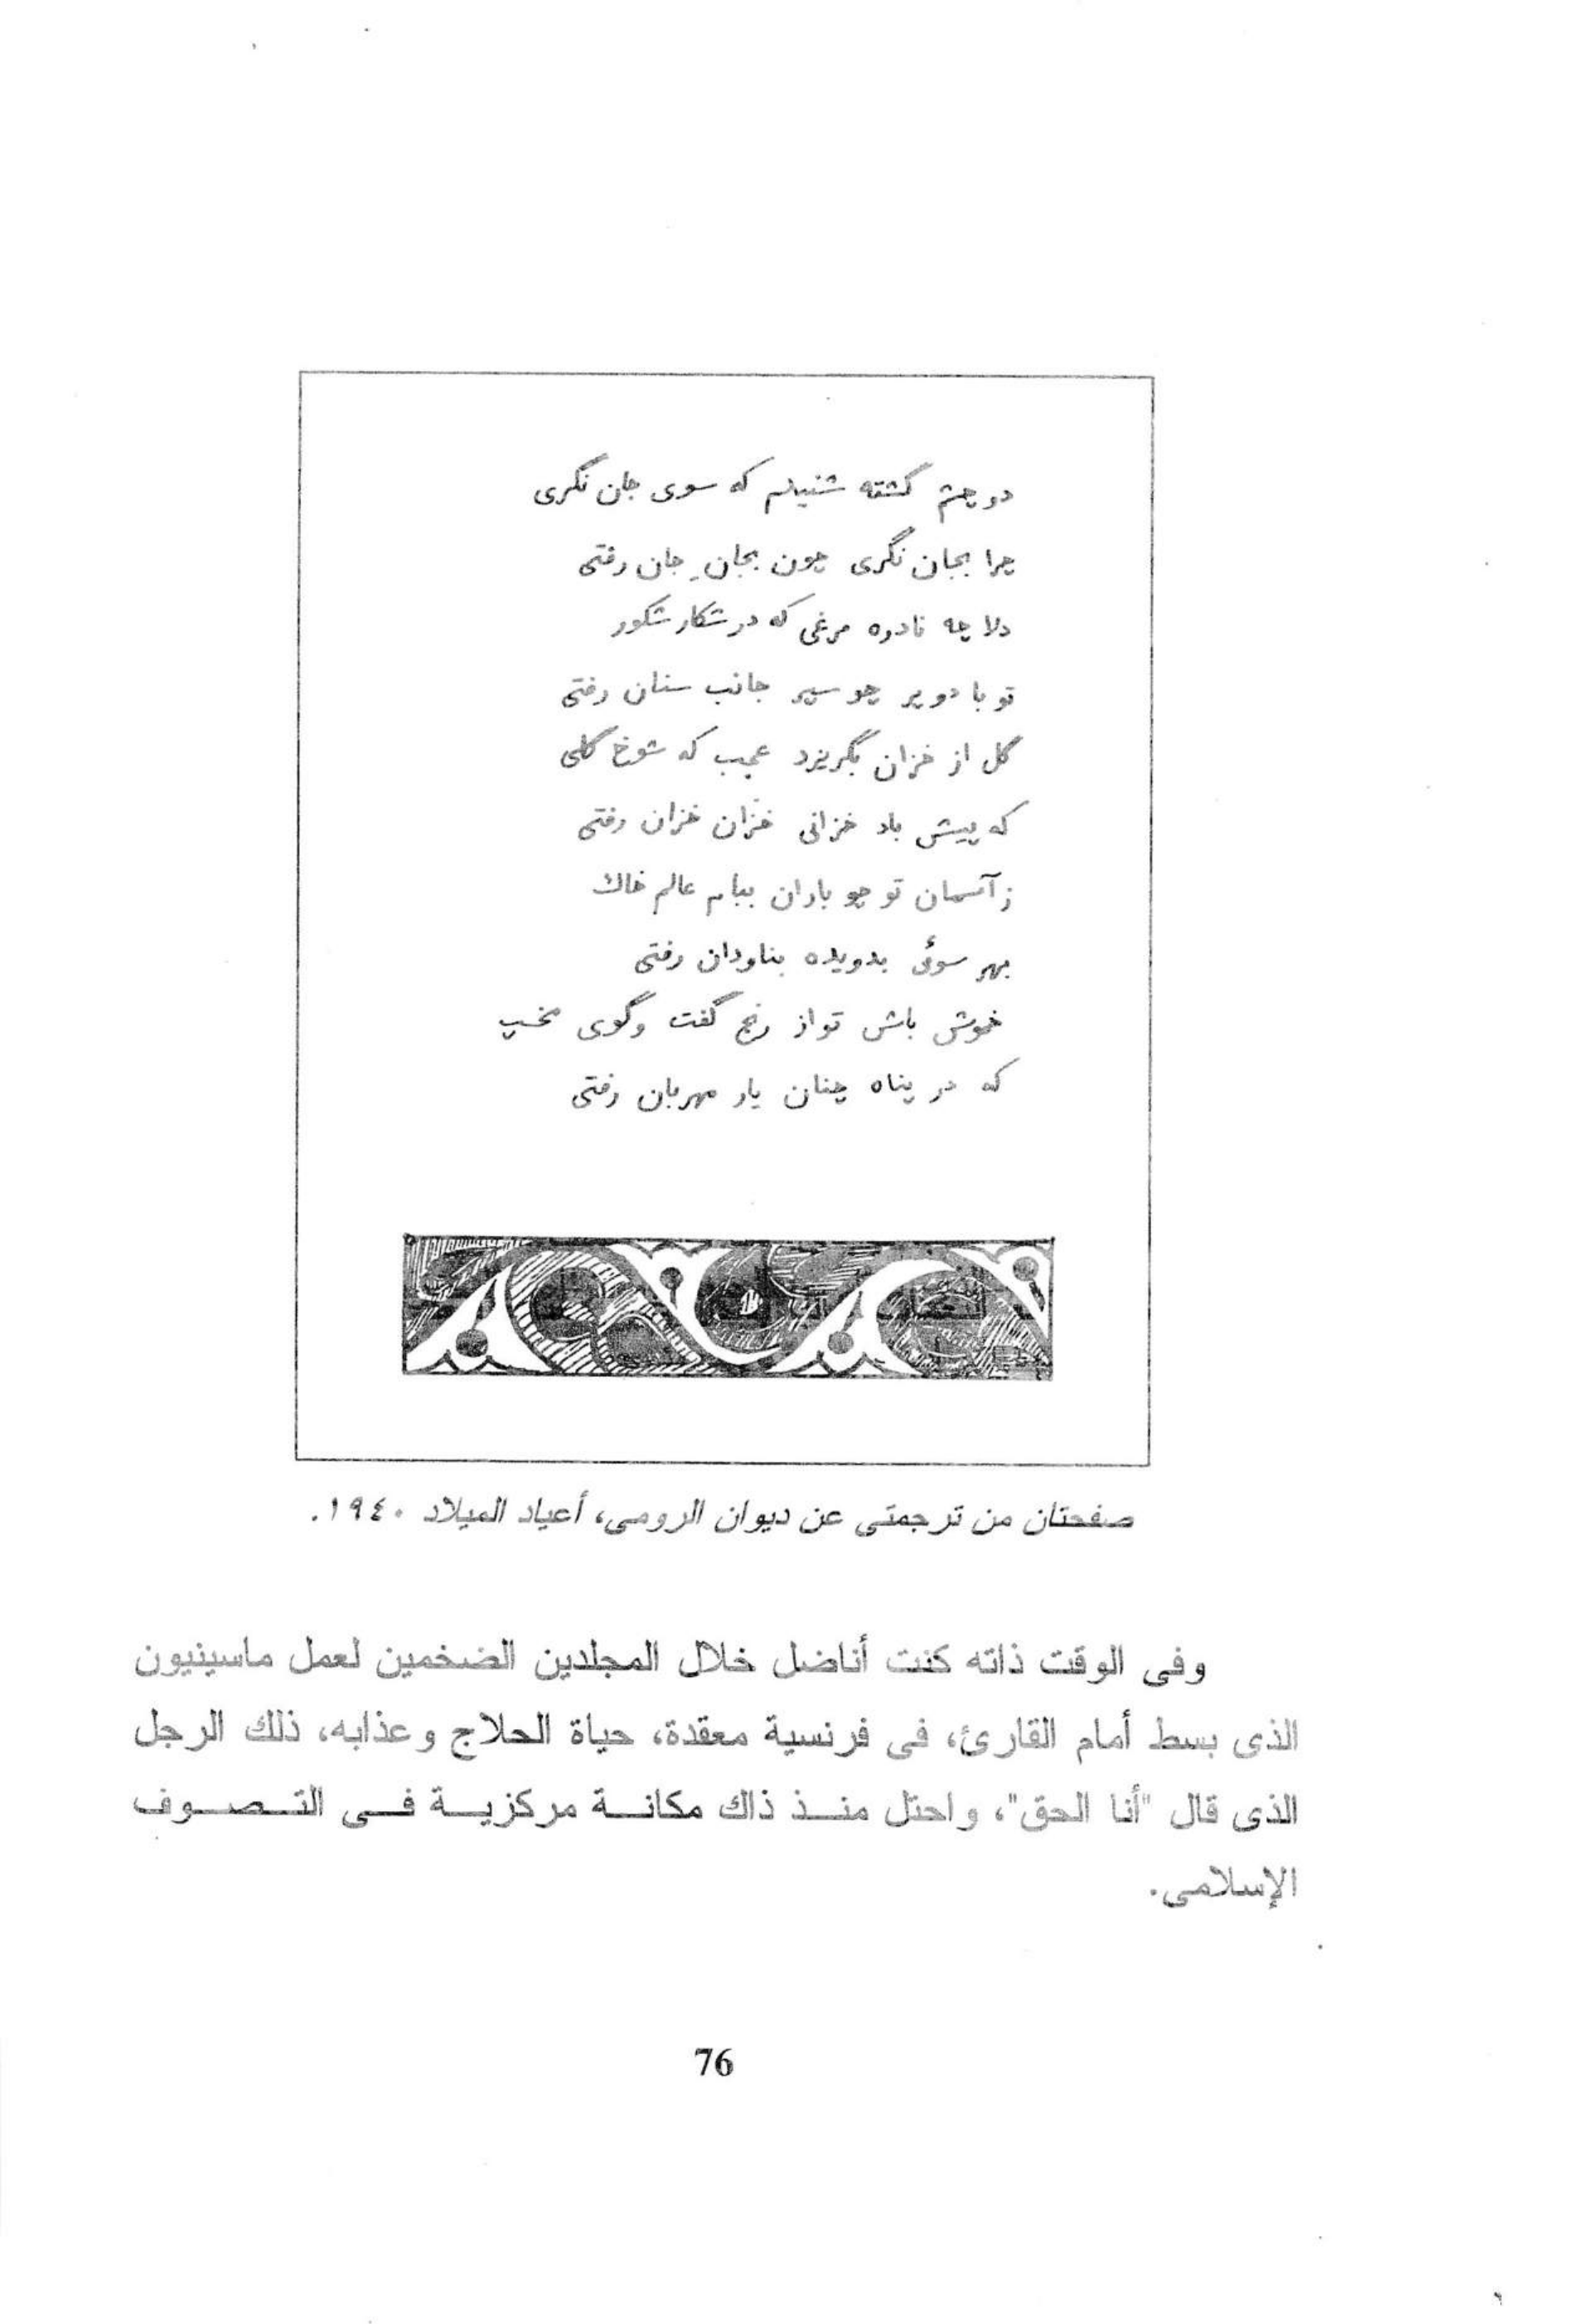 دو چشم گشته شنیدم که سوی جان نگری
چرا بجان نگری چون بجانِ جان رفتی
دلا چه نادره مرغی که در شکار شکور
تو با دو پر چو سپر جانب سنان رفتی
گل از خزان بگریزد عجب که شوخ گلی
که پیش باد خزانی خزان خزان رفتی
ز آسمان تو چو باران ببام عالم خاك
بهر سوئی بدویده بناودان رفتی
خموش باش تو از رنج گفت وگوی مخسپ
که در پناه چنان یار مهربان رفتی
صفحتان من ترجمتى عن ديوان الرومى، أعياد الميلاد ١٩٤٠.
وفى الوقت ذاته كنت أناضل خلال المجلدين الضخمين لعمل ماسينيون
الذى بسط أمام القارئ، فى فرنسية معقدة، حياة الحلاج وعذابه، ذلك الرجل
الذى قال "أنا الحق"، واحتل منـــذ ذاك مكانـــة مركزيـــة فـــى التـــصـــوف
الإسلامى.
76